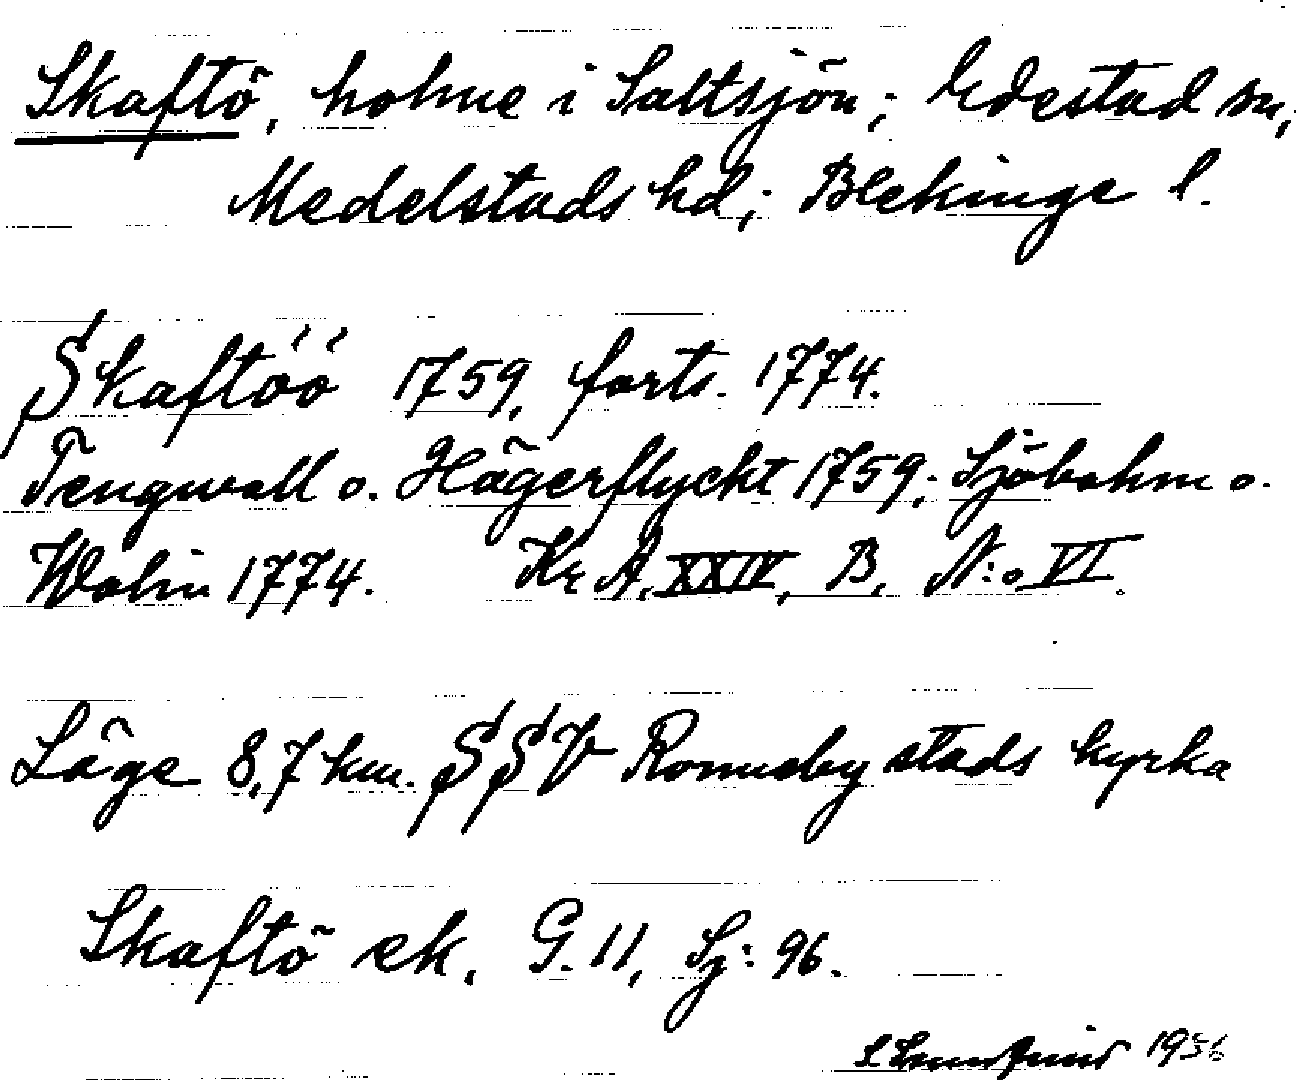 Skaftö, holme i Saltsjön; Edestad sn,
Medelstads hd; Blekinge l.
Skaftöö 1759, forts. 1774.
Tengwall o. Hägerflycht 1759; Sjöbohm o.
Wolin 1774. Kr. A. XXIV, B, N:o VI.
Läge 8,7 km. SSV Ronneby stads kyrka
Skaftö ek. G. 11, Sj: 96.
1956